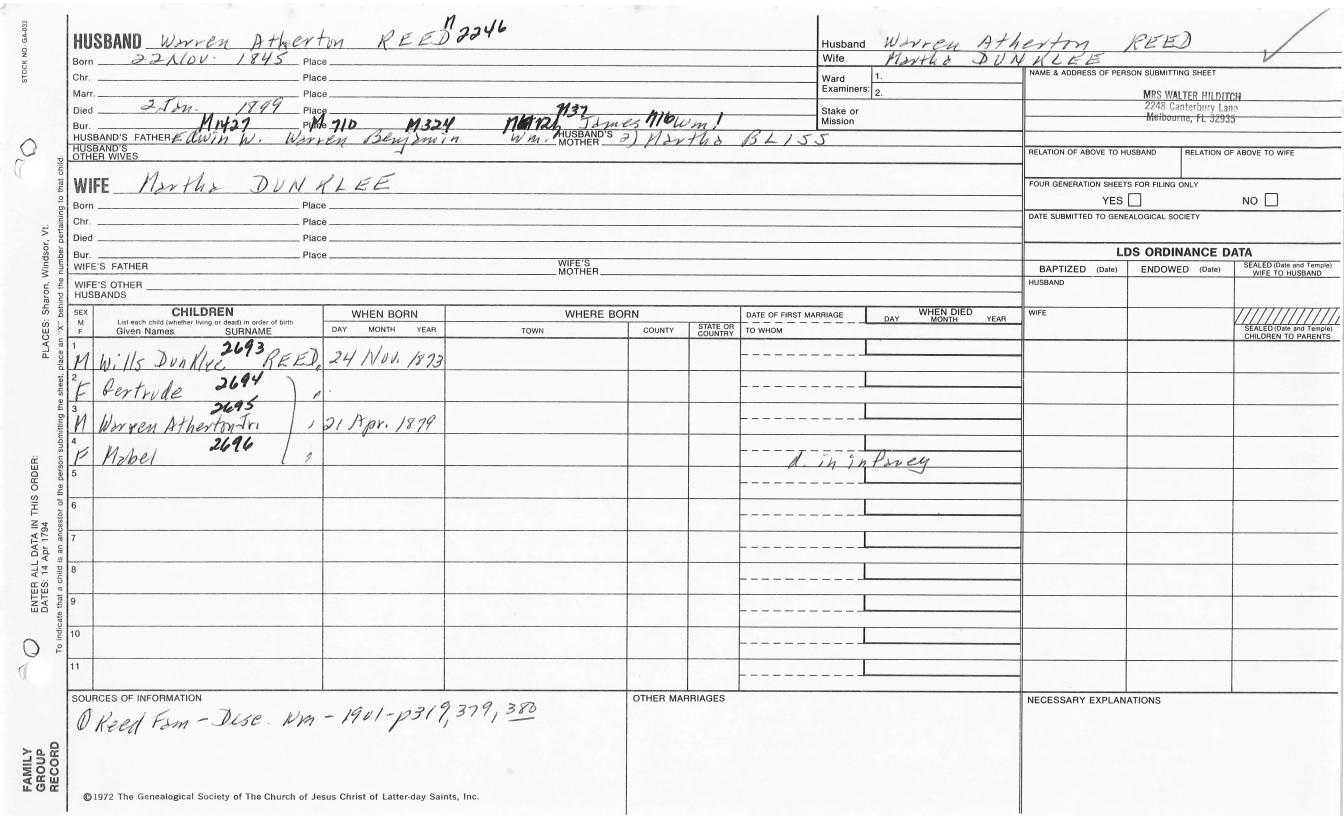 STOCK NO. GA-033
PLACES: Sharon, Windsor, Vt.
ENTER ALL DATA IN THIS ORDER:
DATES: 14 Apr 1794
To indicate that a child is an ancestor of the person submitting the sheet, place an "X" behind the number pertaining to that child.
FAMILY GROUP RECORD
HUSBAND Warren Atherton REED M2246
Born 22 Nov. 1845 Place
Chr. Place
Marr. Place
Died 2 Jan. 1899 Place
Bur. Place
M1427 M710 M324 M37 M16 1
HUSBAND'S FATHER Edwin W. Warren Benjamin Wm. James Wm
HUSBAND'S MOTHER 2) Martha BLISS
HUSBAND'S OTHER WIVES
WIFE Martha DUNKLEE
Born Place
Chr. Place
Died Place
Bur. Place
WIFE'S FATHER WIFE'S MOTHER
WIFE'S OTHER HUSBANDS
Husband Warren Atherton REED
Wife Martha DUNKLEE
Ward Examiners: 1. 2.
Stake or Mission
NAME & ADDRESS OF PERSON SUBMITTING SHEET
MRS WALTER HILDITCH
2248 Canterbury Lane
Melbourne, FL 32935
RELATION OF ABOVE TO HUSBAND RELATION OF ABOVE TO WIFE
FOUR GENERATION SHEETS FOR FILING ONLY
YES NO
DATE SUBMITTED TO GENEALOGICAL SOCIETY
LDS ORDINANCE DATA
BAPTIZED (Date) ENDOWED (Date) SEALED (Date and Temple) WIFE TO HUSBAND
HUSBAND
WIFE
SEALED (Date and Temple) CHILDREN TO PARENTS
SEX M F
CHILDREN
List each child (whether living or dead) in order of birth
Given Names SURNAME
WHEN BORN
DAY MONTH YEAR
WHERE BORN
TOWN COUNTY STATE OR COUNTRY
DATE OF FIRST MARRIAGE
TO WHOM
WHEN DIED
DAY MONTH YEAR
1 M Wills Dunklee 2693 REED 24 Nov. 1873
2 F Gertrude 2694 "
3 M Warren Atherton Jr. 2695 " 21 Apr. 1879
4 F Mabel 2696 " d. in infancy
5
6
7
8
9
10
11
SOURCES OF INFORMATION
① Reed Fam - Desc. Wm - 1901 - p319, 379, 380
OTHER MARRIAGES
NECESSARY EXPLANATIONS
©1972 The Genealogical Society of The Church of Jesus Christ of Latter-day Saints, Inc.